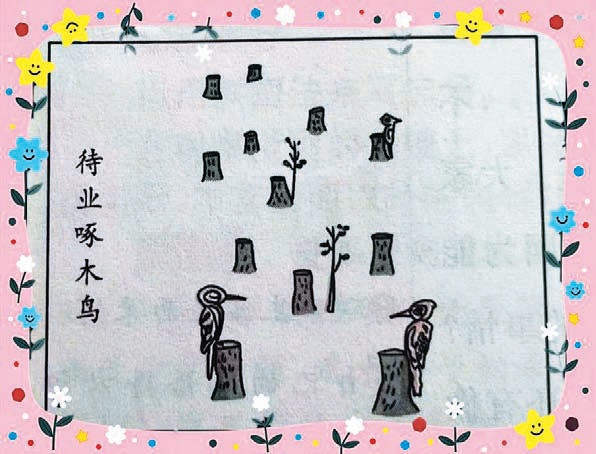 待业啄木鸟